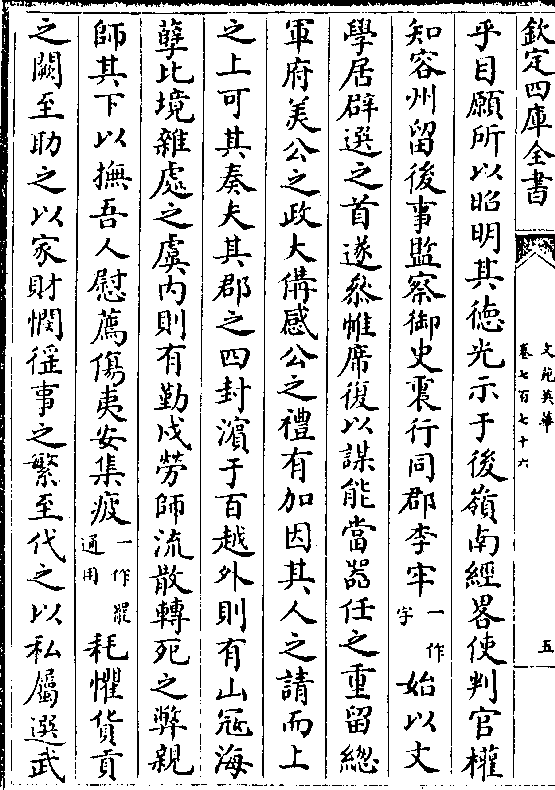 欽定四庫全書
文苑英華
卷七百七十六
五
乎目願所以昭明其徳光示于後嶺南經畧使判官權
知容州留後事監察御史裏行同郡李牢一作字始以文
學居辟選之首遂叅帷席復以謀能當噐任之重留總
軍府美公之政大備感公之禮有加因其人之請而上
之上可其奏夫其郡之四封濵于百越外則有山冦海
孽比境雜處之虞内則有勤戍勞師流散轉死之弊親
師其下以撫吾人慰薦傷夷安集疲一作罷通用耗懼貨貢
之闕至助之以家財憫徭事之繁至代之以私屬選武